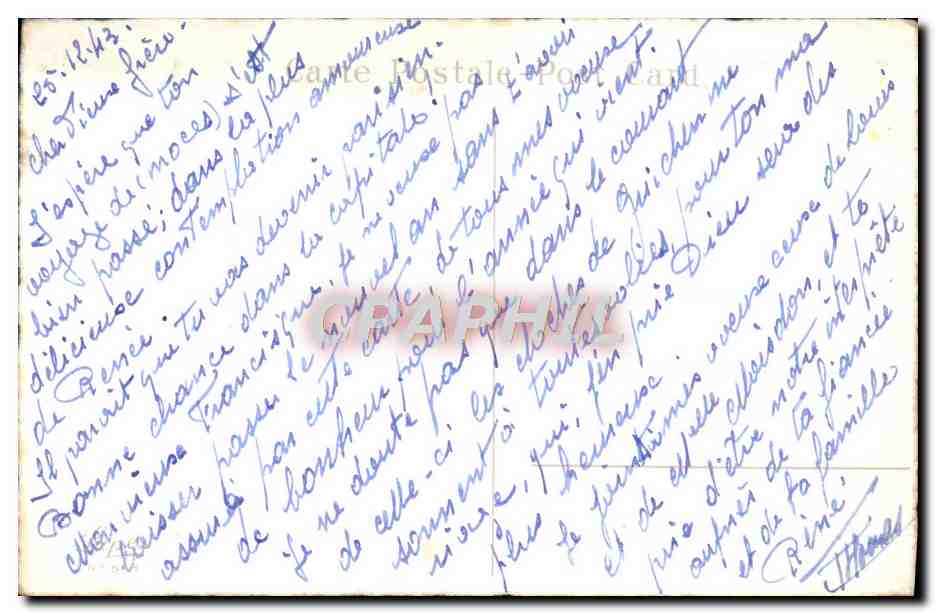 Carte Postale Post Card
CPAPHIL
25.12.43
Cher Vieux frère.
J'espère que ton
voyage de (noces) s'est
bien passé; dans la plus
délicieuse contemplation amoureuse
de Renée.
Il parait que tu vas devenir parisien.
Bonne chance dans la capitale
Monsieur Francisque, je ne veux pas
laisser passer le nouvel an sans t'avoir
assuré par cette carte de tous mes voeux
de bonheur pour l'année qui vient.
Je ne doute pas que dans le courant
de celle-ci les cloches de Quichen ne
sonnent à toutes volées pour ton ma
riage, qui, j'en prie Dieu sera des
plus heureux.
Je joins mes voeux ceux de Louis
et de Melle Moisdon, et te
prie d'être notre interprête
auprès de ta fiancée
et de ta famille
René.